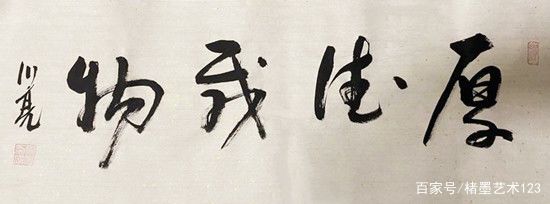 厚德载物
川亮
百家号/楮墨艺术123